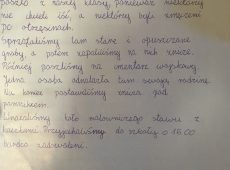 poszło z naszej klasy, ponieważ niektórzy
nie chcieli iść, a niektórzy byli zmęczeni
po otrzęsinach.
Sprzątaliśmy tam stare i opuszczone
groby, a potem zapaliliśmy na nich znicze.
Później poszliśmy na cmentarz wojskowy.
Jedna osoba odnalazła tam swoją rodzinę.
Na koniec postawiliśmy znicza pod
pomnikiem.
Wracaliśmy koło malowniczego stawu z
kaczkami. Przyjechaliśmy do szkoły o 15.00
bardzo zadowoleni.